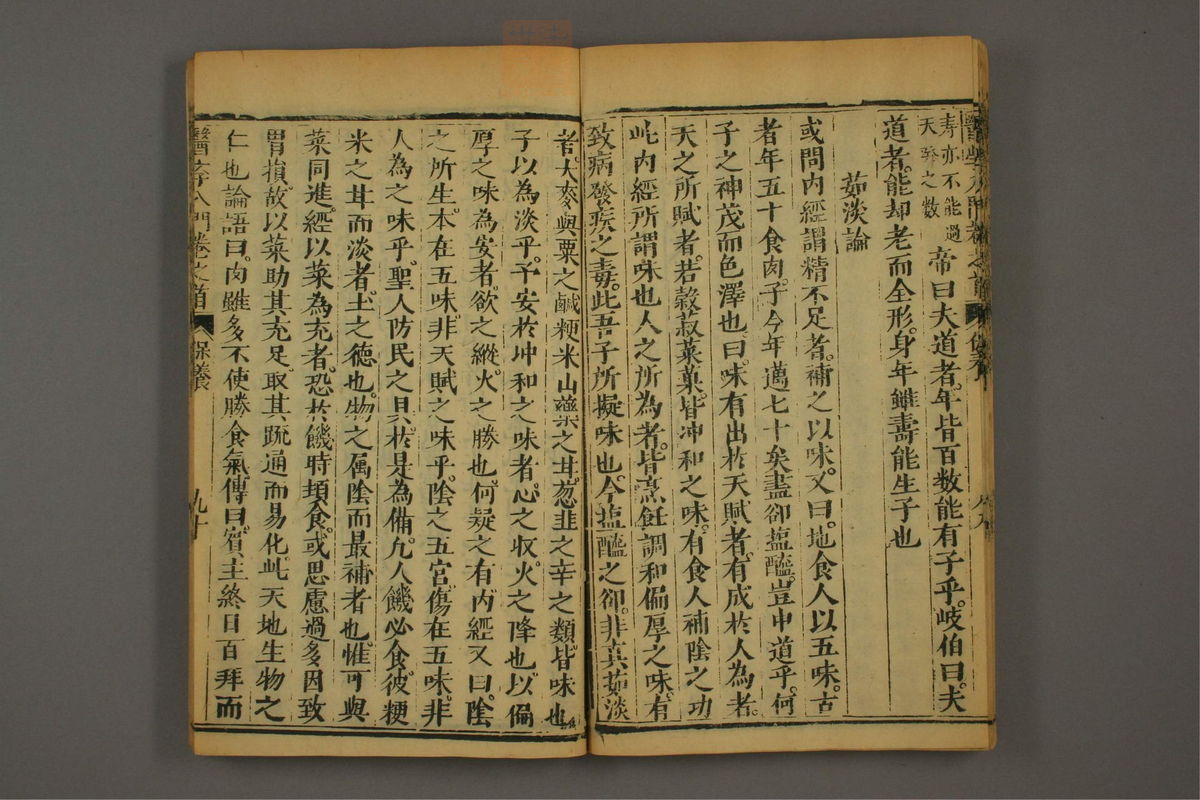 壽亦不能過
天癸之數
帝曰夫道者年皆百数能有子乎岐伯曰夫
道者能却老而全形身年雖壽能生子也
茹淡論
或問内經謂精不足者補之以味又曰地食人以五味古
者年五十食肉子今年邁七十矣盡卻塩醯豈中道乎何
子之神茂而色澤也曰味有出於天賦者有成於人為者
天之所賦者若穀菽菜菓皆冲和之味有食人補陰之功
此内經所謂味也人之所為者皆烹飪調和偏厚之味有
致病發疾之毒此吾子所擬味也今塩醯之卻非真茹淡
者大麥與粟之鹹粳米山藥之甘葱韭之辛之類皆味也
子以為淡乎予安於冲和之味者心之収火之降也以偏
厚之味為安者欲之縱火之勝也何疑之有内經又曰陰
之所生本在五味非天賦之味乎陰之五官傷在五味非
人為之味乎聖人防民之具於是為備凡人饑必食彼粳
米之甘而淡者土之德也物之属陰而最補者也惟可與
菜同進經以菜為充者恐於饑時頓食或思慮過多因致
胃損故以菜助其充足取其疏通而易化此天地生物之
仁也論語曰肉雖多不使勝食氣傳曰賓主終日百拜而
醫之行八門卷之首
保養
九十